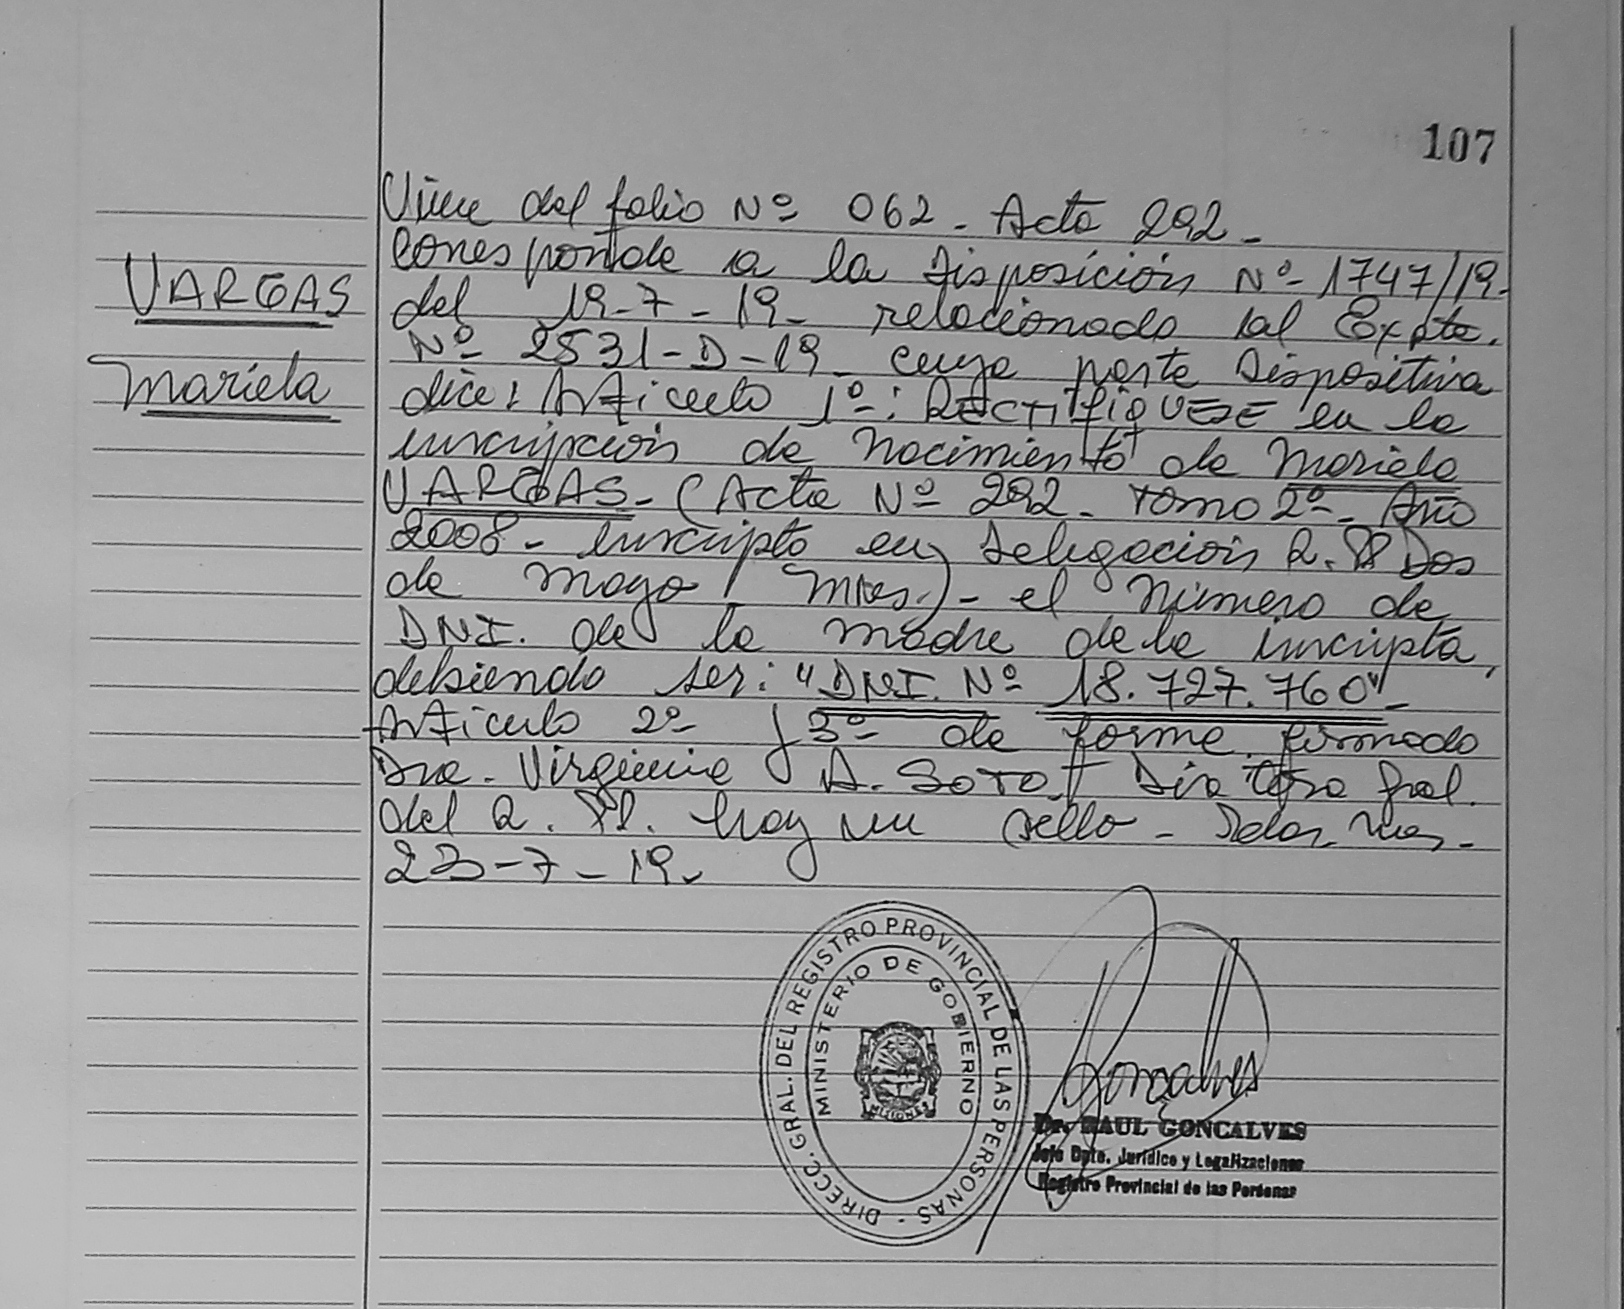 107
Viene del folio Nº 062 - Acta 292 -
Corresponde a la Disposición Nº 1747/19-
VARGAS
del 19-7-19- relacionado al Expte.
Nº 2531-D-19- cuya parte Dispositiva
Mariela
dice: Artículo 1º: RECTIFIQUESE en la
inscripción de Nacimiento de Mariela
VARGAS - (Acta Nº 292 - Tomo 2º - Año
2008 - inscripto en Delegación R. PP Dos
de Mayo Mnes.) - el Número de
DNI. de la madre de la inscripta,
debiendo ser: "DNI. Nº 18.727.760" -
Artículo 2º y 3º de forme firmado
Dra. Virginia A. SOTO. Directora Gral.
del R. PP. hay un sello - Pdas. Mnes. -
23-7-19-
DIRECC. GRAL. DEL REGISTRO PROVINCIAL DE LAS PERSONAS -
MINISTERIO DE GOBIERNO
MISIONES
Goncalves
Dr. RAUL GONCALVES
Jefe Dpto. Jurídico y Legalizaciones
Registro Provincial de las Personas